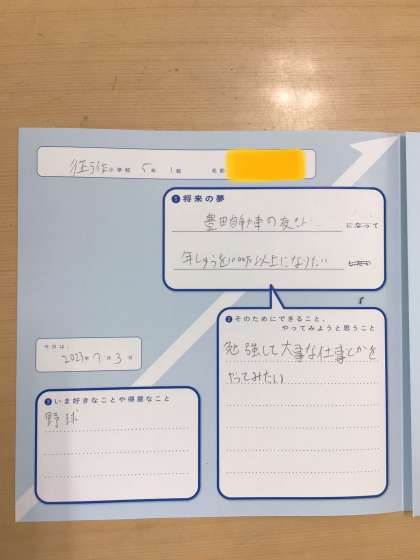 小学校 5年 1組 名前
❶将来の夢
豊田自動車の になって
年しゅうを1000万以上になりたい
❷そのためにできること、
やってみようと思うこと
勉強して大事な仕事とかを
やってみたい
今日は、
2021年 7月 3日
❸いま好きなことや得意なこと
野球